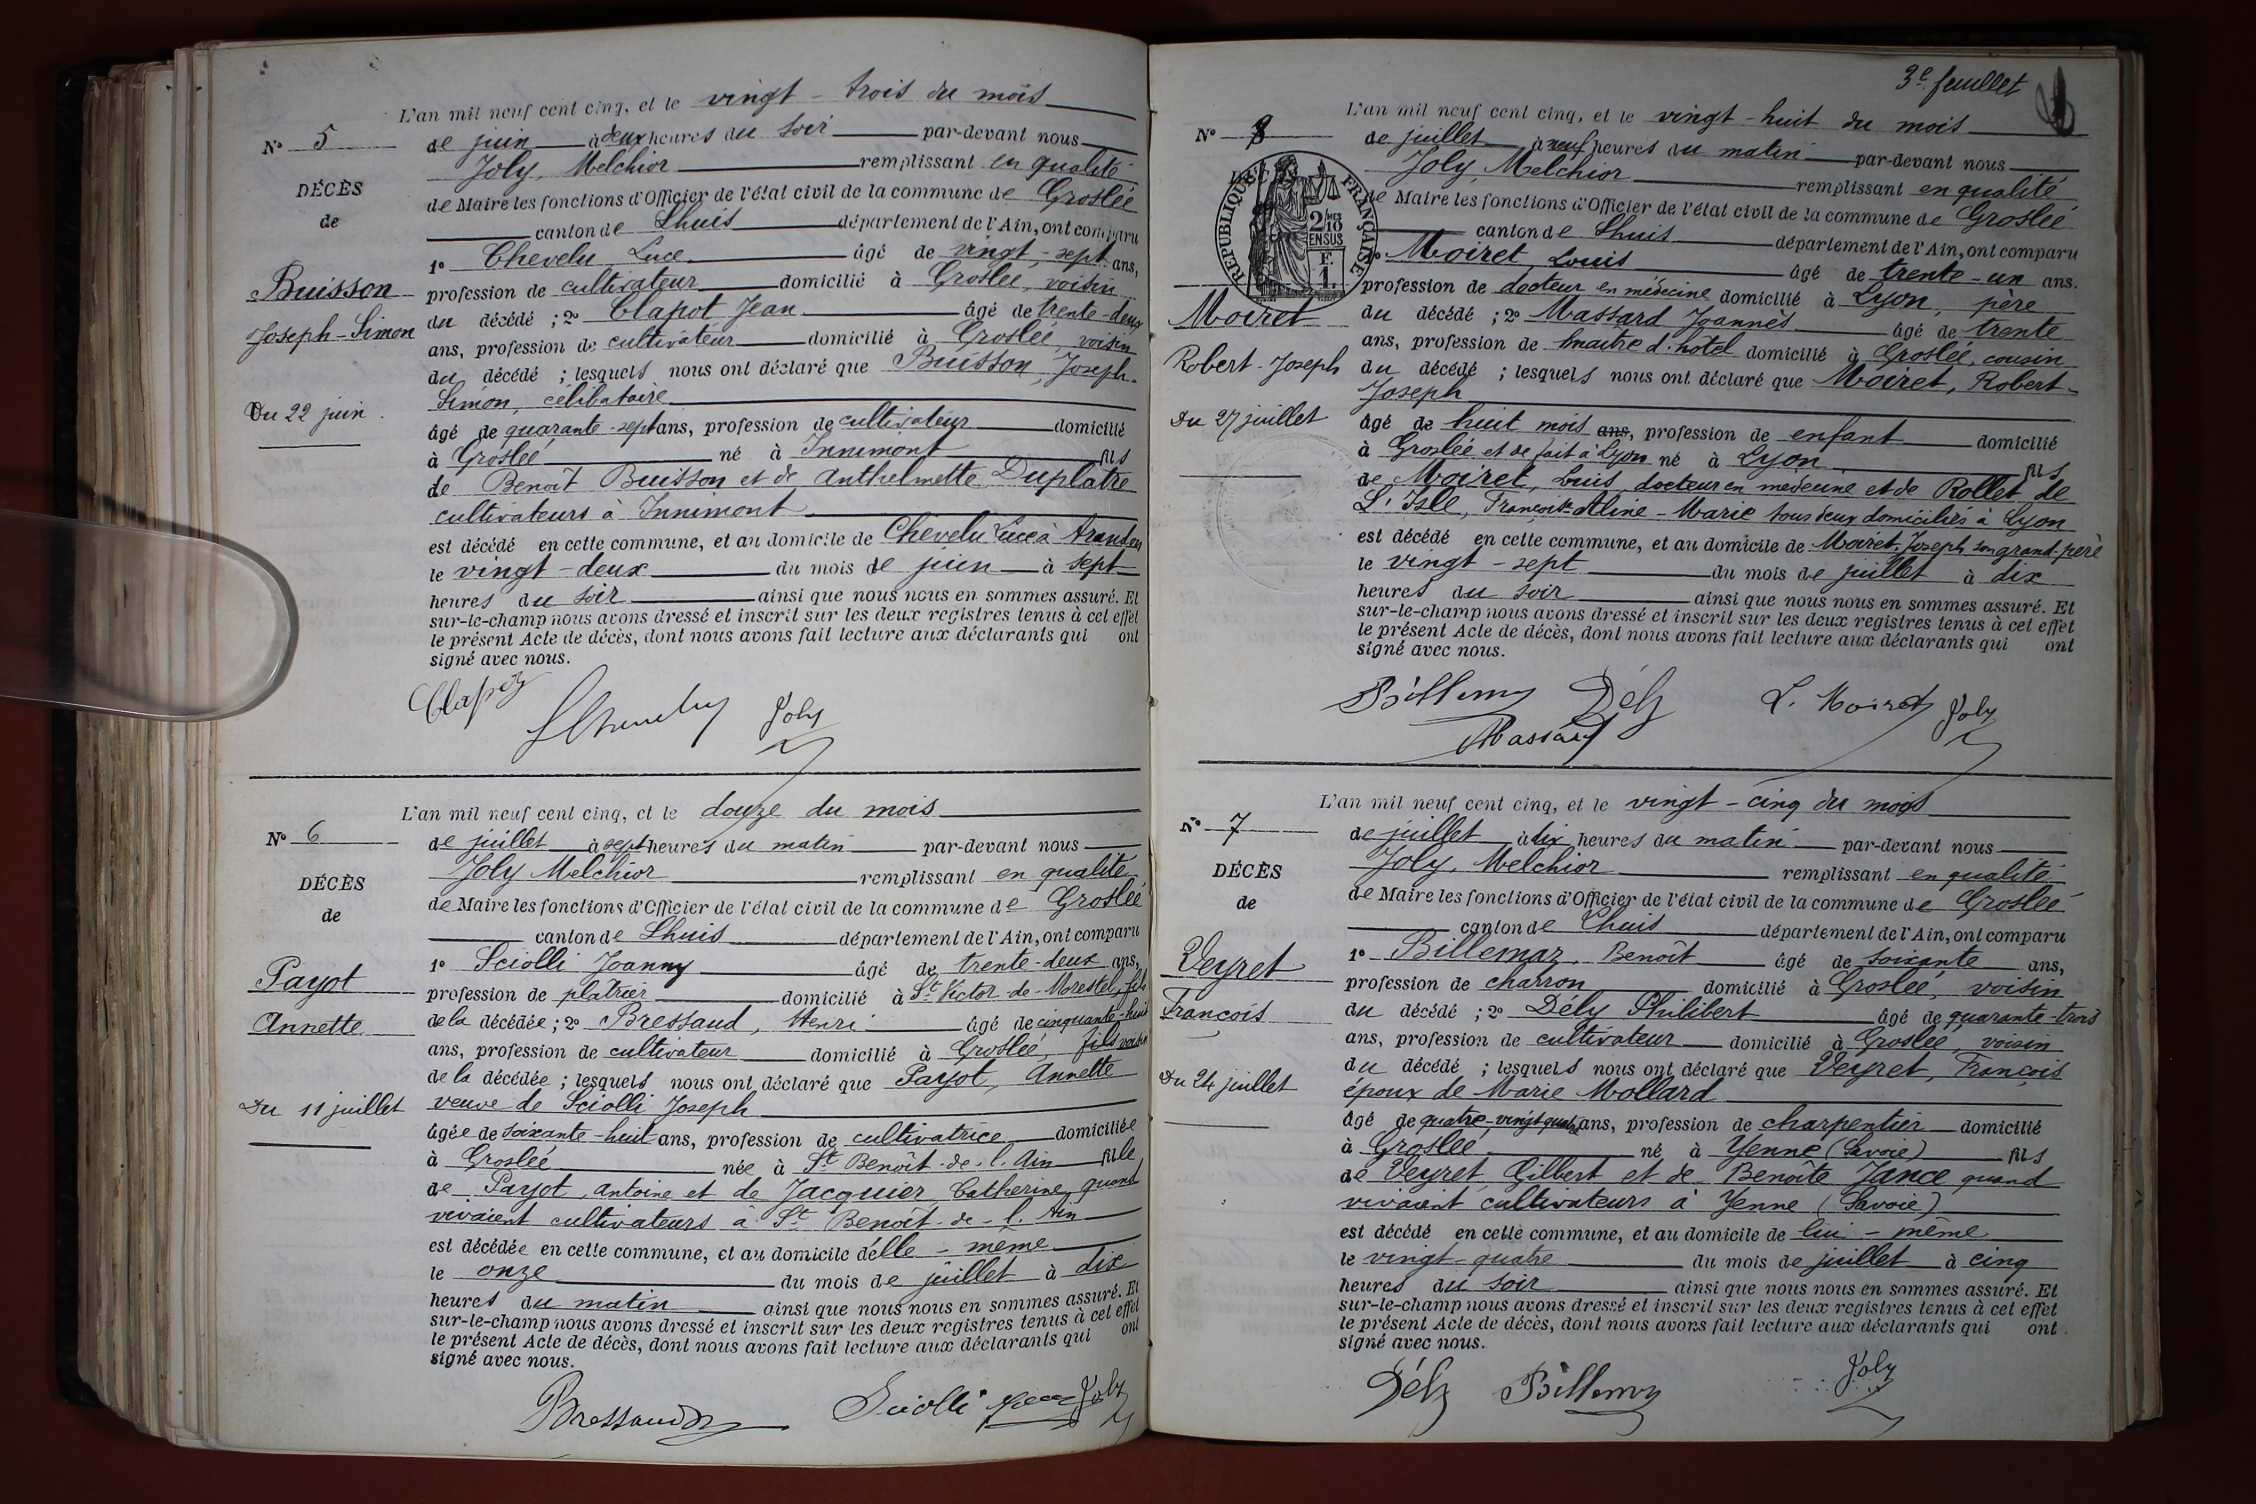 L'an mil neuf cent cinq, et le vingt-trois du mois
N° 5
de juin à deux heures du soir par-devant nous
Joly, Melchior remplissant en qualité
DÉCÈS
de Maire les fonctions d'Officier de l'état civil de la commune de Groslée
de
canton de Lhuis département de l'Ain, ont comparu
1° Chevelu Luce âgé de vingt-sept ans,
Buisson
profession de cultivateur domicilié à Groslée, voisin
Joseph-Simon
du décédé ; 2° Clapot Jean âgé de trente-deux
ans, profession de cultivateur domicilié à Groslée, voisin
du décédé ; lesquels nous ont déclaré que Buisson, Joseph-
Simon, célibataire
Du 22 juin.
âgé de quarante-sept ans, profession de cultivateur domicilié
à Groslée né à Innimont fils
de Benoît Buisson et de Anthelmette Duplâtre
cultivateurs à Innimont
est décédé en cette commune, et au domicile de Chevelu Luce à Arandon
le vingt-deux du mois de juin à sept
heures du soir ainsi que nous nous en sommes assuré. Et
sur-le-champ nous avons dressé et inscrit sur les deux registres tenus à cet effet
le présent Acte de décès, dont nous avons fait lecture aux déclarants qui ont
signé avec nous.
Clapot Joly
L'an mil neuf cent cinq, et le douze du mois
N° 6
de juillet à sept heures du matin par-devant nous
Joly Melchior remplissant en qualité
DÉCÈS
de Maire les fonctions d'Officier de l'état civil de la commune de Groslée
de
canton de Lhuis département de l'Ain, ont comparu
1° Sciolli Joanny âgé de trente-deux ans,
Payot
profession de platrier domicilié à St Victor-de-Morestel, fils
Annette
de la décédée ; 2° Bressaud, Henri âgé de cinquante-huit
ans, profession de cultivateur domicilié à Groslée, fils voisin
de la décédée ; lesquels nous ont déclaré que Payot, Annette
Du 11 juillet
veuve de Sciolli Joseph
âgée de soixante-huit ans, profession de cultivatrice domiciliée
à Groslée née à St Benoît-de-l.Ain fille
de Payot, Antoine et de Jacquier Catherine, quand
vivaient cultivateurs à St Benoît-de-l.Ain
est décédée en cette commune, et au domicile d'elle-même
le onze du mois de juillet à dix
heures du matin ainsi que nous nous en sommes assuré. Et
sur-le-champ nous avons dressé et inscrit sur les deux registres tenus à cet effet
le présent Acte de décès, dont nous avons fait lecture aux déclarants qui ont
signé avec nous.
Bressaud Sciolli Joly
3e feuillet
L'an mil neuf cent cinq, et le vingt-huit du mois
N° 8
de juillet à neuf heures du matin par-devant nous
Joly, Melchior remplissant en qualité
RÉPUBLIQUE FRANÇAISE
2/10 EN SUS
F. 1.
de Maire les fonctions d'Officier de l'état civil de la commune de Groslée
canton de Lhuis département de l'Ain, ont comparu
1° Moiret, Louis âgé de trente-un ans.
profession de docteur en médecine domicilié à Lyon, père
Moiret
du décédé ; 2° Massard Joannès âgé de trente
Robert-Joseph
ans, profession de maître d.hôtel domicilié à Groslée, cousin
du décédé ; lesquels nous ont déclaré que Moiret, Robert-
Joseph
Du 27 juillet
âgé de huit mois ans, profession de enfant domicilié
à Groslée et de fait à Lyon né à Lyon fils
de Moiret, Louis, docteur en médecine et de Rollet de
L'Isle, Françoise-Aline-Marie tous deux domiciliés à Lyon
est décédé en cette commune, et au domicile de Moiret, Joseph son grand-père
le vingt-sept du mois de juillet à dix
heures du soir ainsi que nous nous en sommes assuré. Et
sur-le-champ nous avons dressé et inscrit sur les deux registres tenus à cet effet
le présent Acte de décès, dont nous avons fait lecture aux déclarants qui ont
signé avec nous.
Billemaz Dély L. Moiret Joly
Massard
L'an mil neuf cent cinq, et le vingt-cinq du mois
N° 7
de juillet à dix heures du matin par-devant nous
Joly, Melchior remplissant en qualité
DÉCÈS
de Maire les fonctions d'Officier de l'état civil de la commune de Groslée
de
canton de Lhuis département de l'Ain, ont comparu
1° Billemaz, Benoît âgé de soixante ans,
Veyret
profession de charron domicilié à Groslée, voisin
François
du décédé ; 2° Dély Philibert âgé de quarante-trois
ans, profession de cultivateur domicilié à Groslée, voisin
du décédé ; lesquels nous ont déclaré que Veyret, François
Du 24 juillet
époux de Marie Mollard
âgé de quatre-vingt quatre ans, profession de charpentier domicilié
à Groslée né à Yenne (Savoie) fils
de Veyret, Gilbert et de Benoîte Jance quand
vivaient cultivateurs à Yenne (Savoie)
est décédé en cette commune, et au domicile de lui-même
le vingt-quatre du mois de juillet à cinq
heures du soir ainsi que nous nous en sommes assuré. Et
sur-le-champ nous avons dressé et inscrit sur les deux registres tenus à cet effet
le présent Acte de décès, dont nous avons fait lecture aux déclarants qui ont
signé avec nous.
Dély Billemaz Joly